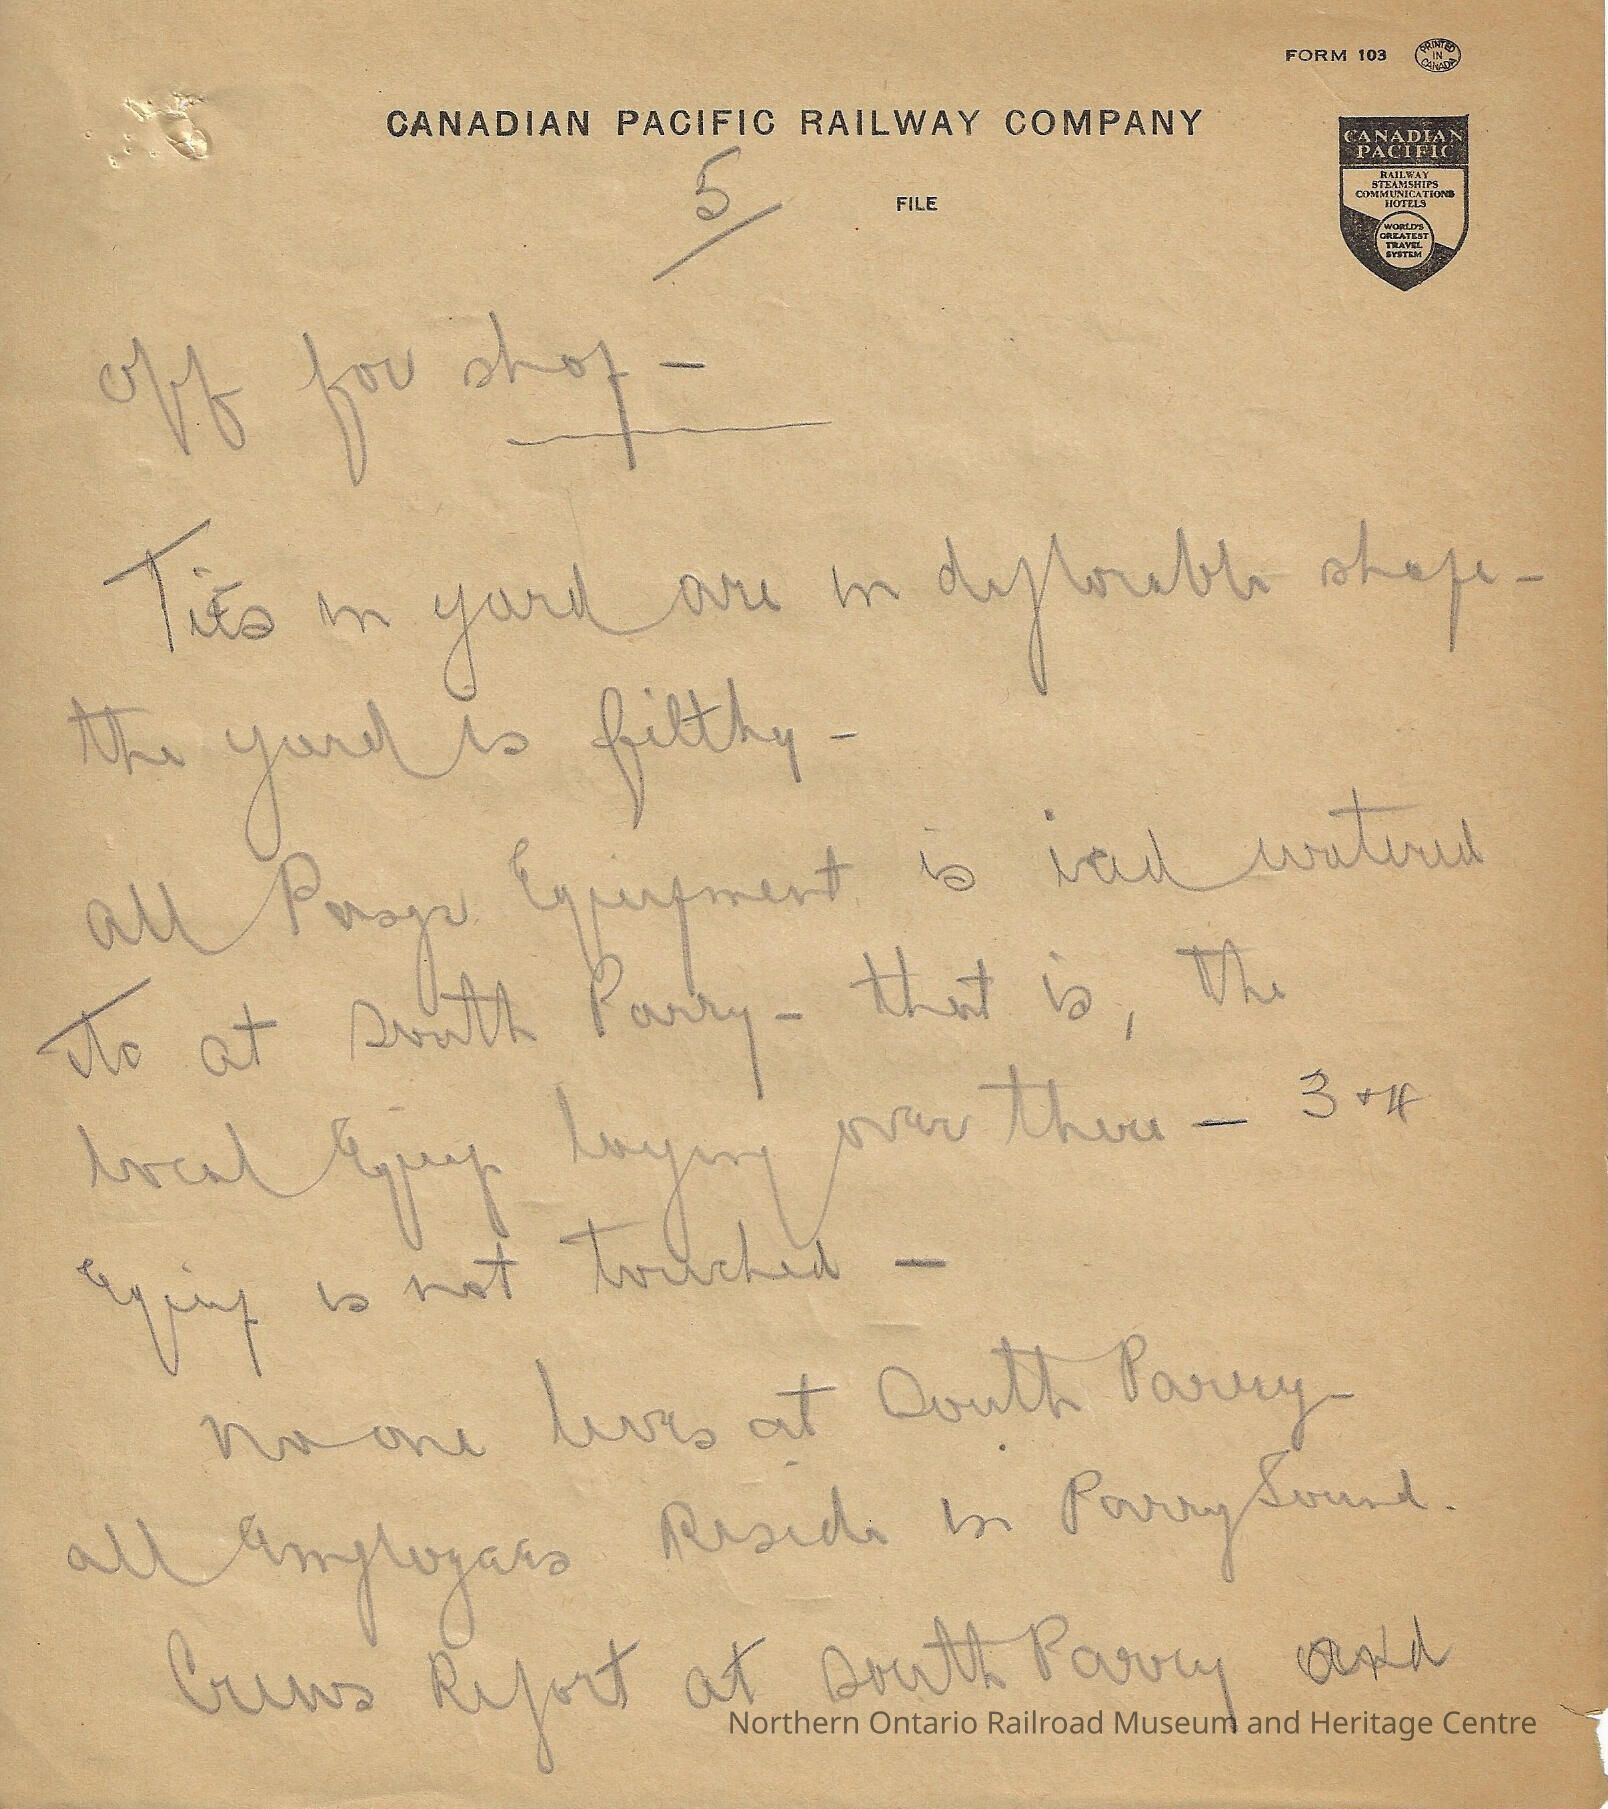 FORM 103 PRINTED IN CANADA
CANADIAN PACIFIC RAILWAY COMPANY
CANADIAN
PACIFIC
RAILWAY
STEAMSHIPS
COMMUNICATIONS
HOTELS
WORLD'S
GREATEST
TRAVEL
SYSTEM
5
FILE
off for shop -
Ties in yard are in deplorable shape -
the yard is filthy -
all Pasgr. Equipment is iced watered
etc at South Parry - that is, the
local Equip laying over there - 3 + 4
Equip is not touched -
no one lives at South Parry -
all Employees Reside in Parry Sound.
Crews Report at South Parry and
Northern Ontario Railroad Museum and Heritage Centre